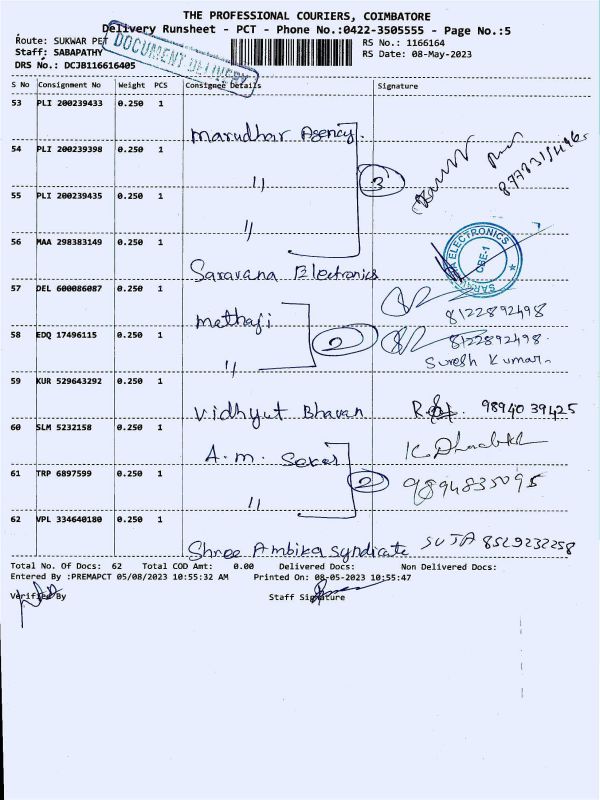 THE PROFESSIONAL COURIERS, COIMBATORE
Delivery Runsheet - PCT - Phone No.:0422-3505555 - Page No.:5
Route: SUKWAR PET
RS No.: 1166164
Staff: SABAPATHY
RS Date: 08-May-2023
DRS No.: DCJB116616405
DOCUMENT DELIVERY
S No Consignment No Weight PCS Consignee Details Signature
53 PLI 200239433 0.250 1 Marudhar Agency
54 PLI 200239398 0.250 1 "
3
55 PLI 200239435 0.250 1 "
56 MAA 298383149 0.250 1 Saravana Electronics
SARAVANA ELECTRONICS CBE-1
57 DEL 600086087 0.250 1 methaji 8122892498
58 EDQ 17496115 0.250 1 " 8122892498.
2
Suresh Kumar.
59 KUR 529643292 0.250 1 Vidhyut Bhavan 98940 39425
60 SLM 5232158 0.250 1 A. m. Sekar
61 TRP 6897599 0.250 1 " 9894835095
2
62 VPL 334640180 0.250 1 Shree Ambika Syndicate SUJA 8529232258
Total No. Of Docs: 62 Total COD Amt: 0.00 Delivered Docs: Non Delivered Docs:
Entered By :PREMAPCT 05/08/2023 10:55:32 AM Printed On: 08-05-2023 10:55:47
Verified By Staff Signature